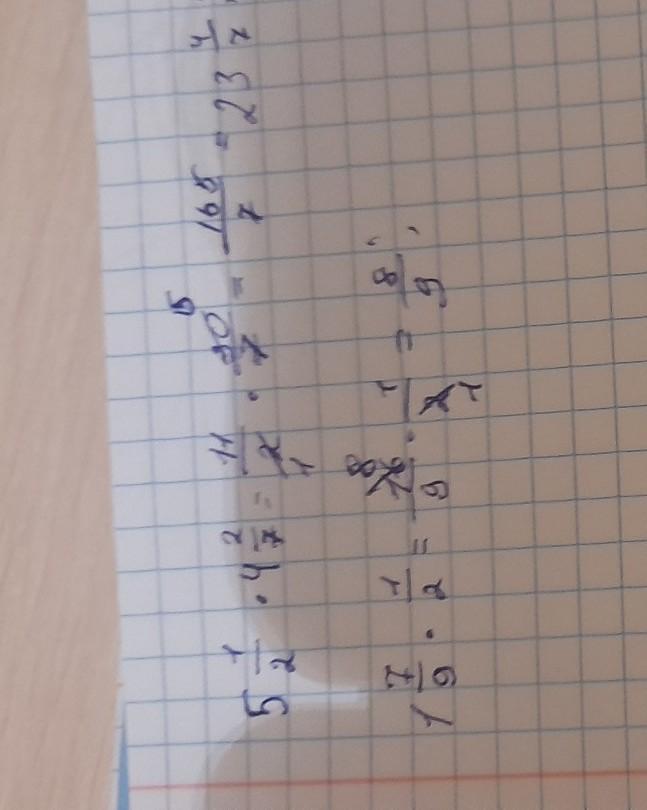 5 1/2 · 4 2/7 = 11/2 · 30/7 = 165/7 = 23 4/7
1 7/9 · 1/2 = 16/9 · 1/2 = 8/9